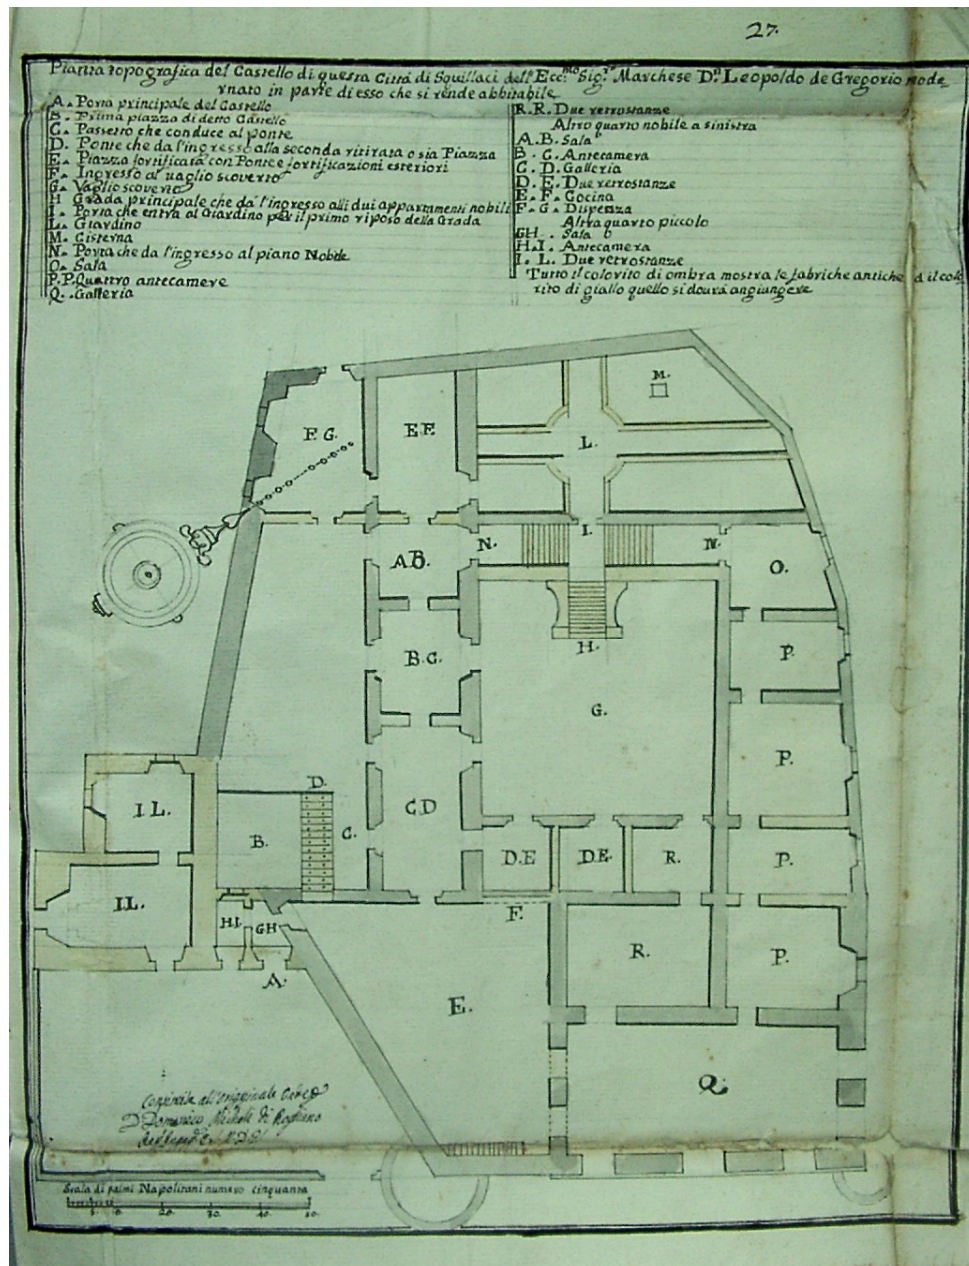 27.
Pianta topografica del Castello di questa Cittá di Squillaci dell'Ecc.mo Sig.re Marchese D.n Leopoldo de Gregorio mode_
rnato in parte di esso che si rende abbitabile
A. Porta principale del Castello
B. Prima piazza di detto Castello
C. Passetto che conduce al ponte
D. Ponte che da l'ingresso alla seconda ritirata o sia Piazza
E. Piazza fortificata con Ponte e fortificazioni esteriori
F. Ingresso al vaglio scoverto
G. Vaglio scoverto
H Grada principale che da l'ingresso alli dui appartamenti nobili
I. Porta che entra al Giardino per il primo riposo della Grada
L. Giardino
M. Cisterna
N. Porta che da l'ingresso al piano Nobile
O. Sala
P.P. Quattro antecamere
Q. Galleria
R.R. Due retrostanze
Altro quarto nobile a sinistra
A.B. Sala
B. C. Antecamera
C. D. Galleria
D. E. Due retrostanze
E. F. Cocina
F. G. Dispenza
Altro quarto piccolo
GH. Sala
H.I. Antecamera
I. L. Due retrostanze
Tutto il colorito di ombra mostra le fabriche antiche d il colo
rito di giallo quello si dourá angiungere
M.
F. G.
E F.
L.
I.
N.
N.
A B.
O.
H.
B. C.
P.
G.
P.
D.
I L.
C D
C.
B.
D.E
D.E.
R.
P.
I L.
F.
H.I.
GH
R.
P.
A.
E.
Q.
D Domenico
Scala di palmi Napolitani numero cinquanta
5. 10. 20. 30. 40. 50.